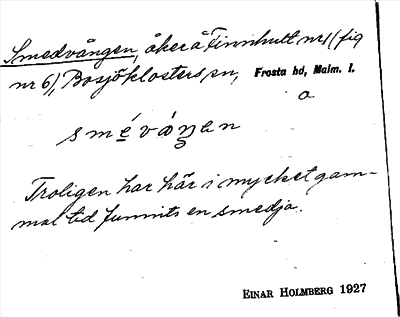 Smedvången, åker å Finnhult nr 1 (fig
nr 6), Bosjöklosters sn, Frosta hd, Malm. l.
a
sméváŋen
Troligen har här i mycket gam-
mal tid funnits en smedja.
EINAR HOLMBERG 1927